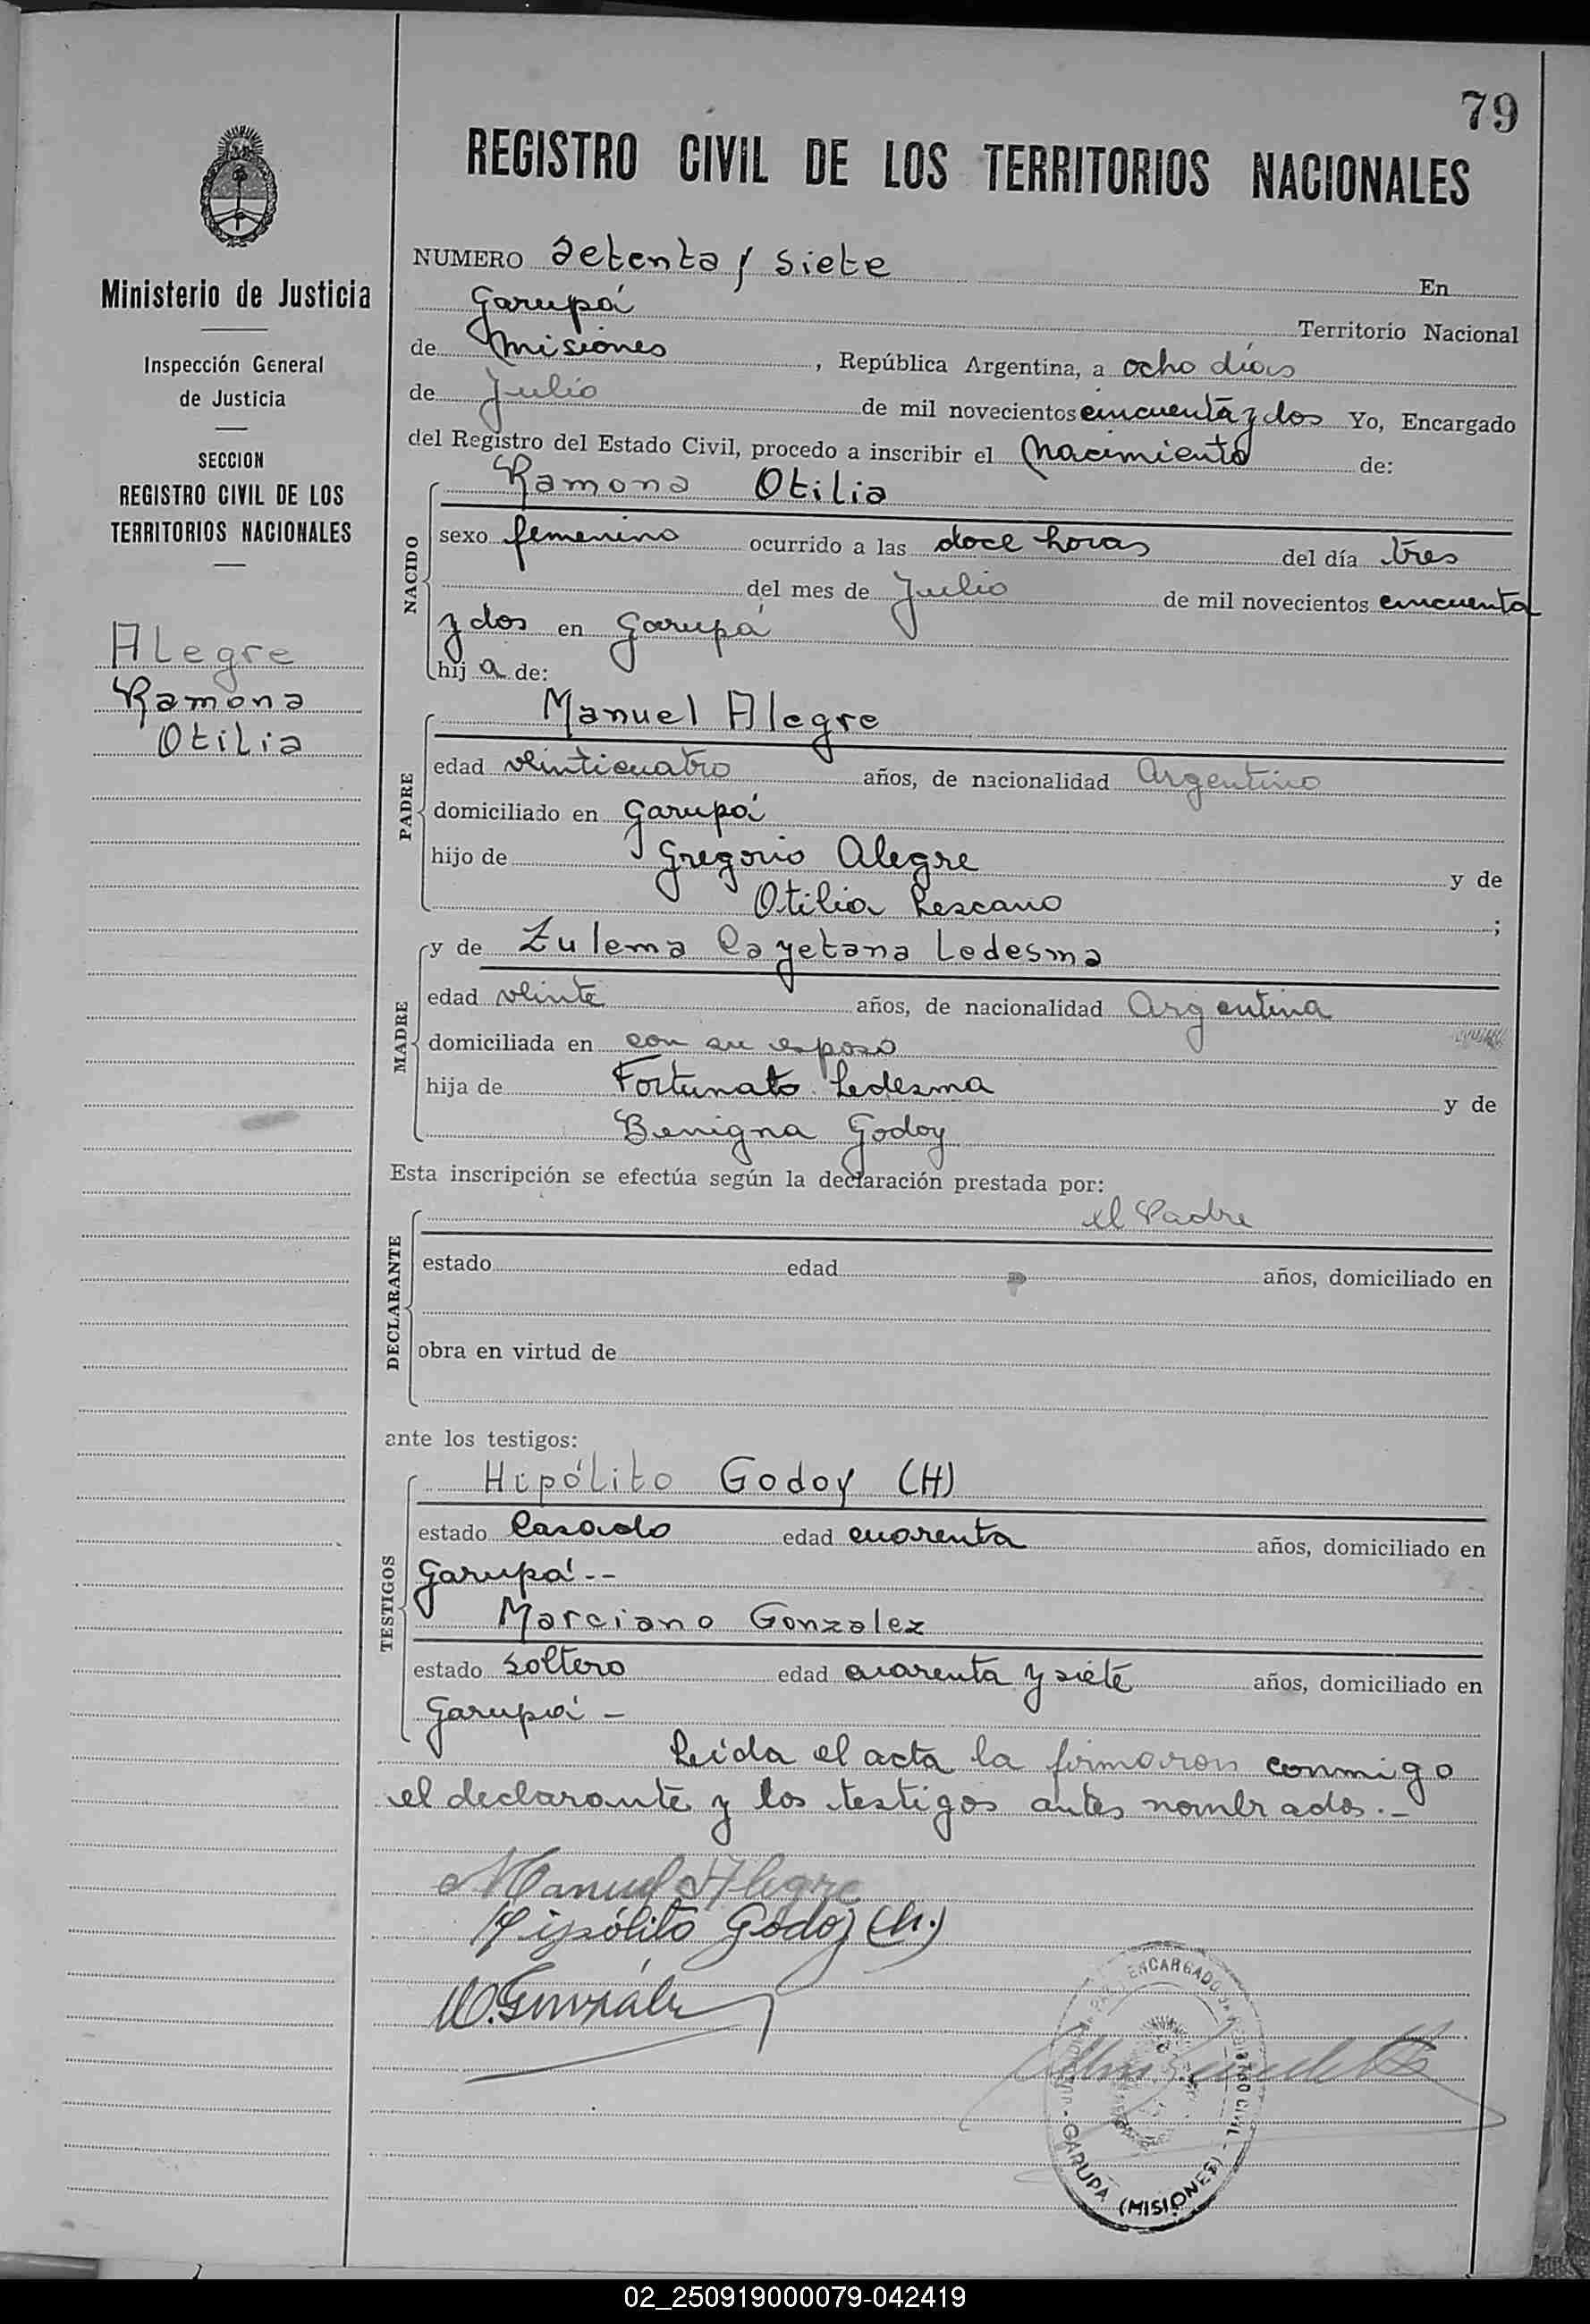 79
REGISTRO CIVIL DE LOS TERRITORIOS NACIONALES
Ministerio de Justicia
Inspección General
de Justicia
SECCION
REGISTRO CIVIL DE LOS
TERRITORIOS NACIONALES
Alegre
Ramona
Otilia
NUMERO Setenta y siete En
Garupá Territorio Nacional
de Misiones, República Argentina, a ocho días
de Julio de mil novecientos cincuenta y dos Yo, Encargado
del Registro del Estado Civil, procedo a inscribir el Nacimiento de:
NACIDO
Ramona Otilia
sexo femenino ocurrido a las doce horas del día tres
del mes de Julio de mil novecientos cincuenta
y dos en Garupá
hij a de:
PADRE
Manuel Alegre
edad veinticuatro años, de nacionalidad Argentino
domiciliado en Garupá
hijo de Gregorio Alegre y de
Otilia Lescano ;
MADRE
y de Zulema Cayetana Ledesma
edad veinte años, de nacionalidad Argentina
domiciliada en con su esposo
hija de Fortunato Ledesma y de
Benigna Godoy
Esta inscripción se efectúa según la declaración prestada por:
DECLARANTE
el Padre
estado edad años, domiciliado en
obra en virtud de
ante los testigos:
TESTIGOS
Hipólito Godoy (H)
estado Casado edad cuarenta años, domiciliado en
Garupá.--
Marciano Gonzalez
estado soltero edad cuarenta y siete años, domiciliado en
Garupá -
Leída el acta la firmaron conmigo
el declarante y los testigos antes nombrados.-
Manuel Alegre
Hipólito Godoy (h.)
M. González
ENCARGADO
CIVIL
GARUPA (MISIONES)
02_250919000079-042419